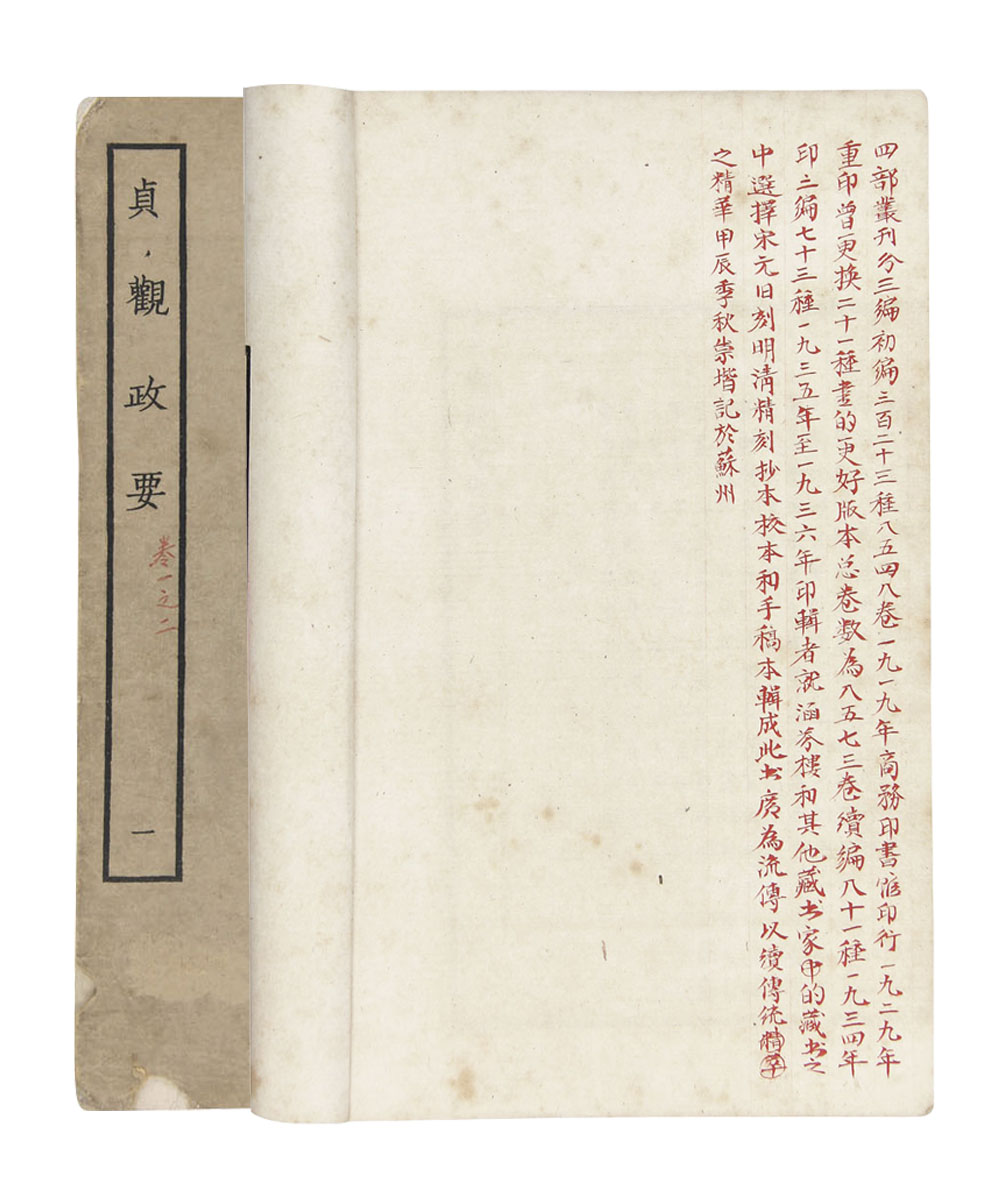 四部叢刊分三編初編三百二十三種八五四八卷一九一九年商務印書館印行一九二九年
重印曾更换二十一種書的更好版本总卷数為八五七三卷續編八十一種一九三四年
印三编七十三種一九三五年至一九三六年印輯者就涵芬樓和其他藏书家中的藏书之
中選擇宋元旧刻明清精刻抄本校本和手稿本輯成此书廣為流傳以續傳统精萃
之精華甲辰季秋崇堦記於蘇州
貞觀政要
一
卷一之二